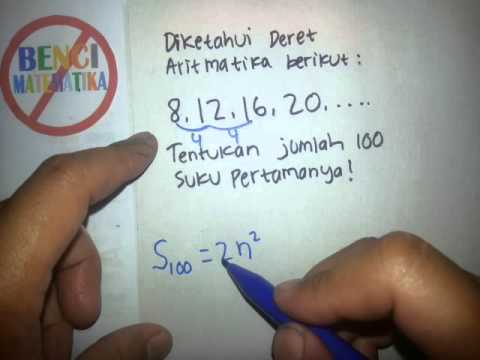 BENCI
MATEMATIKA
Diketahui Deret
Aritmatika berikut :
8, 12, 16, 20, .....
4 4
Tentukan jumlah 100
suku Pertamanya!
S₁₀₀ = 2n²